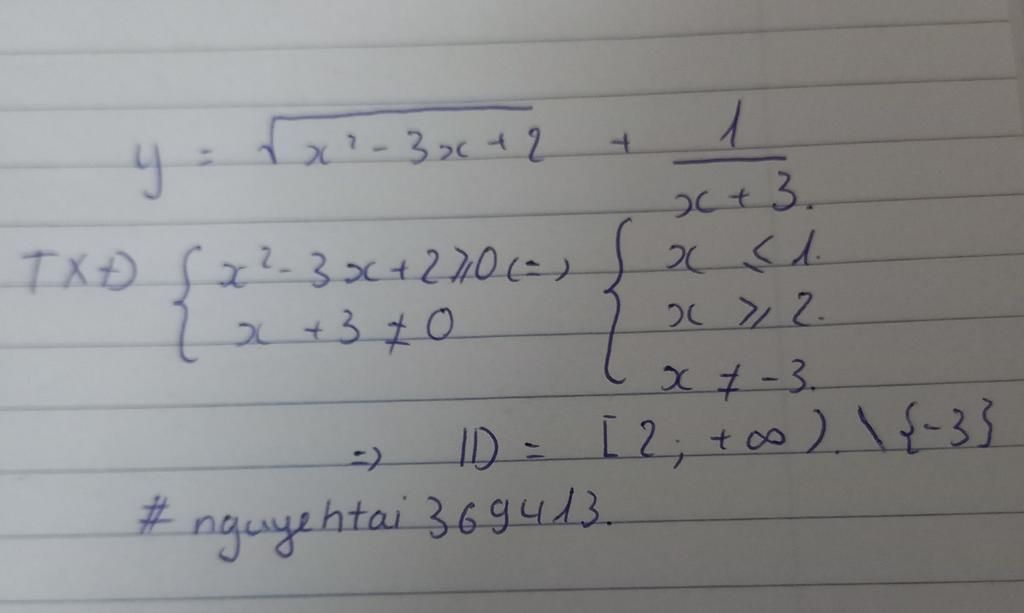 y = √(x² - 3x + 2) + 1/(x + 3).
TXĐ { x² - 3x + 2 ⩾ 0 (=) { x ≤ 1.
x + 3 ≠ 0 x ⩾ 2.
x ≠ -3.
=> D = [2; +∞) \ {-3}
# nguyehtai 369413.